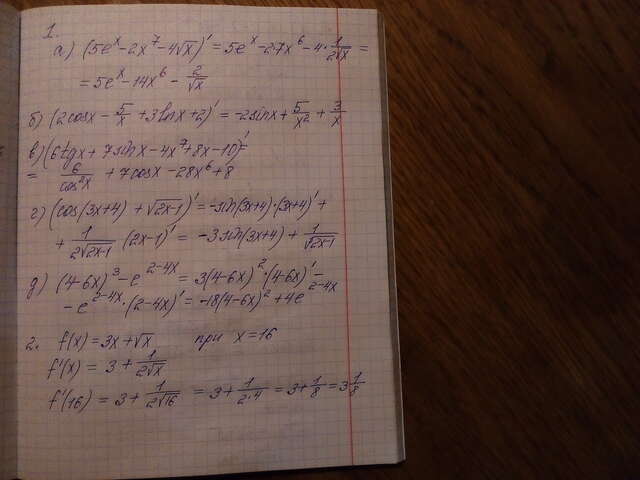 1.
а) (5eˣ - 2x⁷ - 4√x)' = 5eˣ - 2·7x⁶ - 4·1/(2√x) =
= 5eˣ - 14x⁶ - 2/√x
б) (2cosx - 5/x + 3lnx + 2)' = -2sinx + 5/x² + 3/x
в) (6tgx + 7sinx - 4x⁷ + 8x - 10)' =
= 6/cos²x + 7cosx - 28x⁶ + 8
г) (cos(3x+4) + √(2x-1))' = -sin(3x+4)·(3x+4)' +
+ 1/(2√(2x-1)) (2x-1)' = -3sin(3x+4) + 1/√(2x-1)
д) (4-6x)³ - e²⁻⁴ˣ = 3(4-6x)²·(4-6x)' -
- e²⁻⁴ˣ·(2-4x)' = -18(4-6x)² + 4e²⁻⁴ˣ
2. f(x) = 3x + √x при x = 16
f'(x) = 3 + 1/(2√x)
f'(16) = 3 + 1/(2√16) = 3 + 1/(2·4) = 3 + 1/8 = 3 1/8